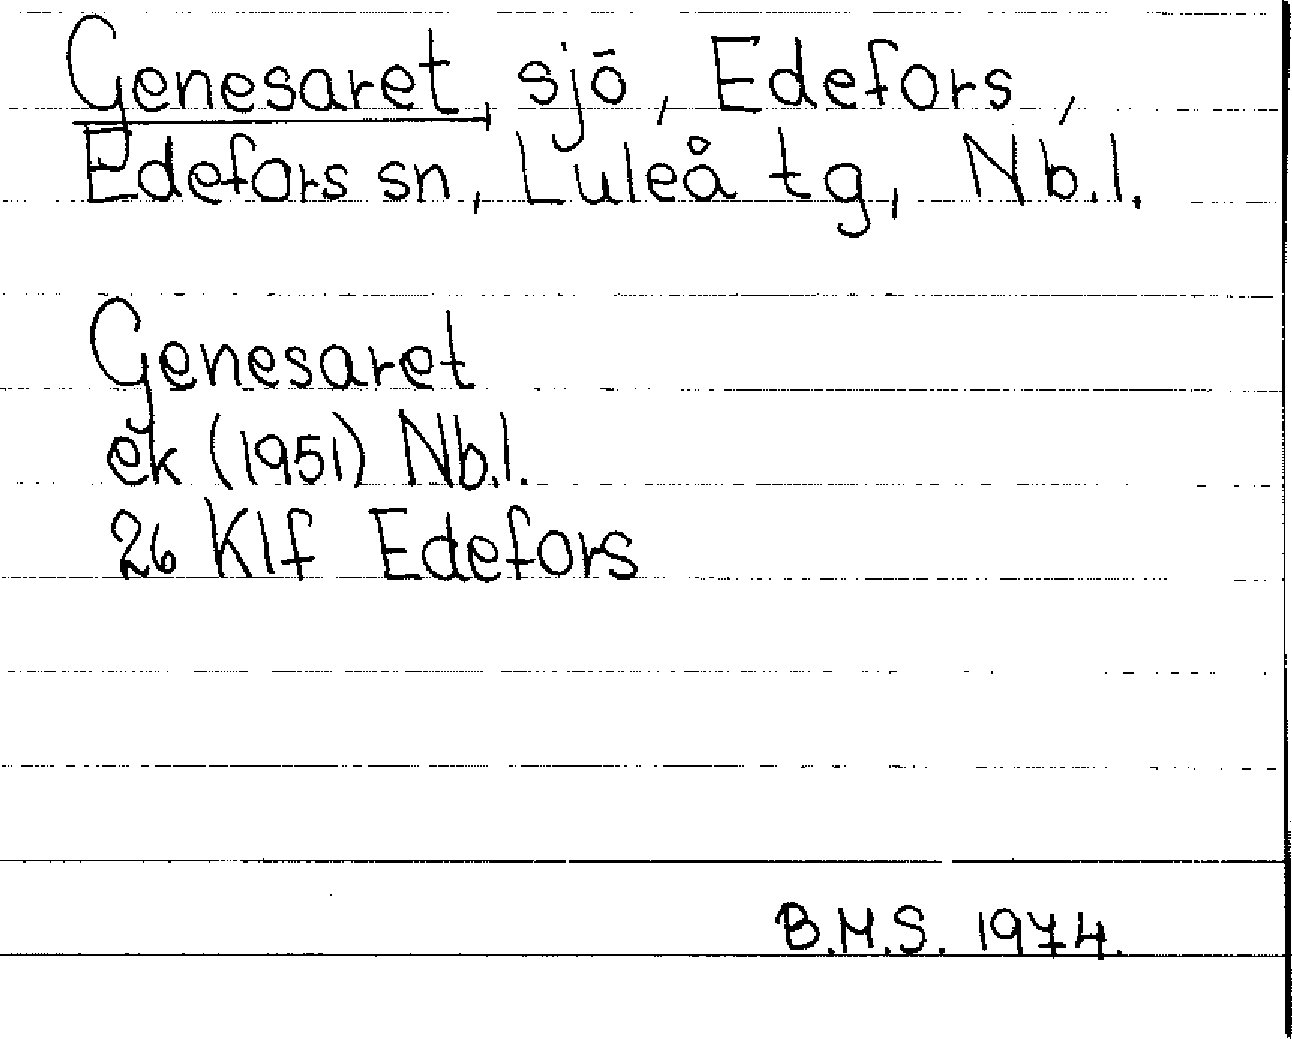 Genesaret, sjö, Edefors,
Edefors sn, Luleå tg, Nb.l.
Genesaret
ek (1951) Nb.l.
26 Klf Edefors
B.M.S. 1974.